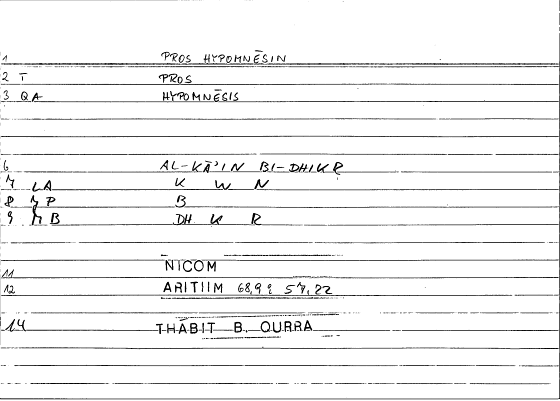 1 PROS HYPOMNĒSIN
2 T PROS
3 QA HYPOMNĒSIS
6 AL-KĀʾIN BI-DHIKR
7 LA K W N
8 7P B
9 7B DH K R
11 NICOM
12 ARITIIM 68,9 57,22
14 THĀBIT B. QURRA